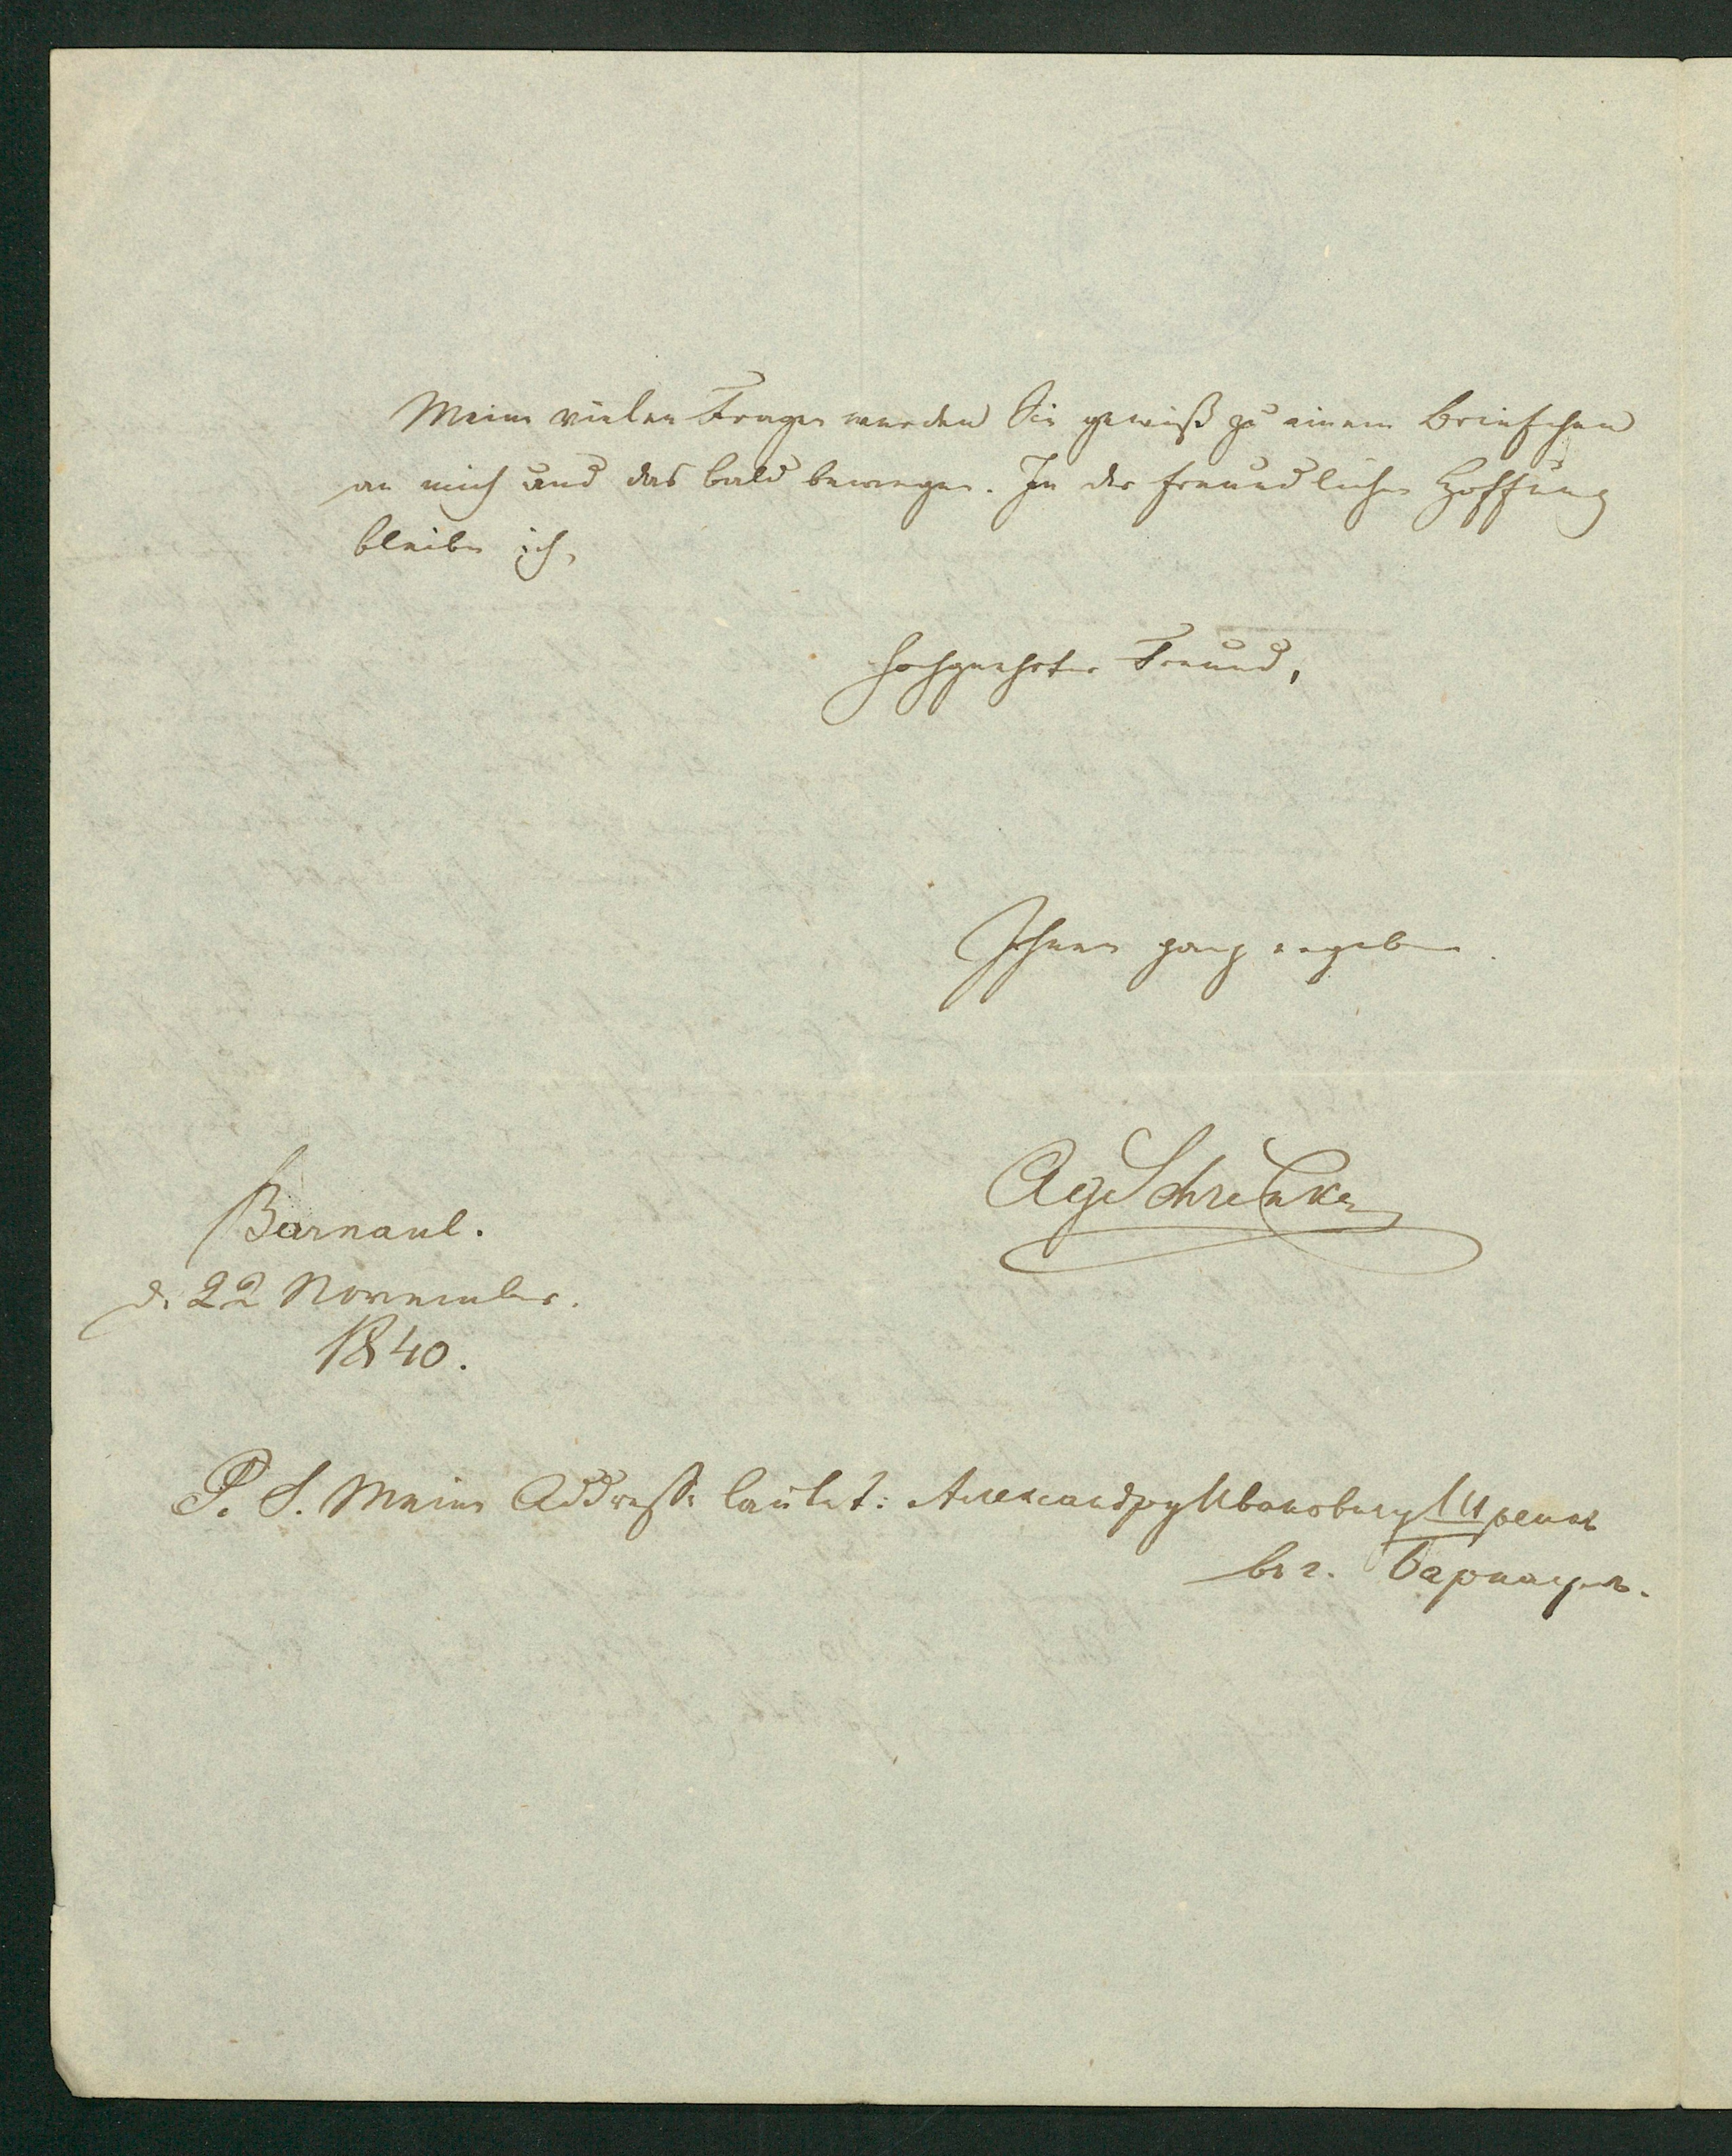 Meine vielen Fragen werden Sie gewiß zu einem Briefchen
an mich und das bald bewegen. In der freundlichen Hoffnung
bleibe ich,
hochgeehrter Freund,
Ihnen ganz ergeben.
Schrenk
Barnaul.
d. 22 November.
1840.
P. S. Meine Addresse lautet: Александру Ивановичу Шренк
въ г. Барнаулъ.